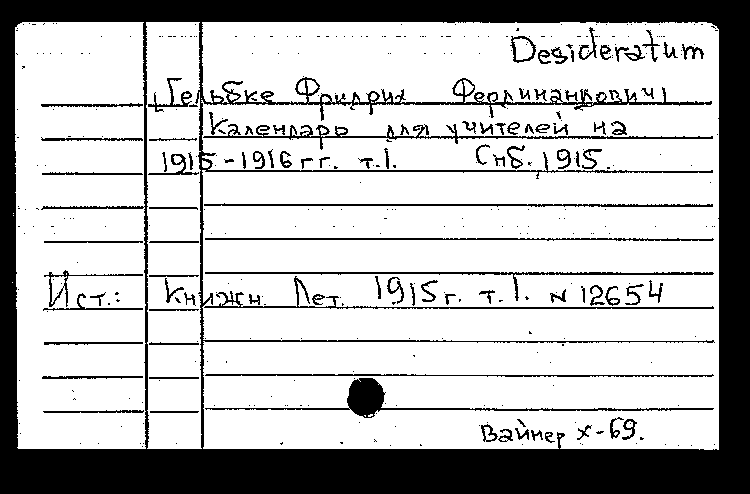 Desideratum
[Гельбке Фридрих Фердинандович]
Календарь для учителей на
1915-1916 гг. т.1. Спб. 1915.
Ист.: Книжн. Лет. 1915г. т.1. N 12654
Вайнер X-69.